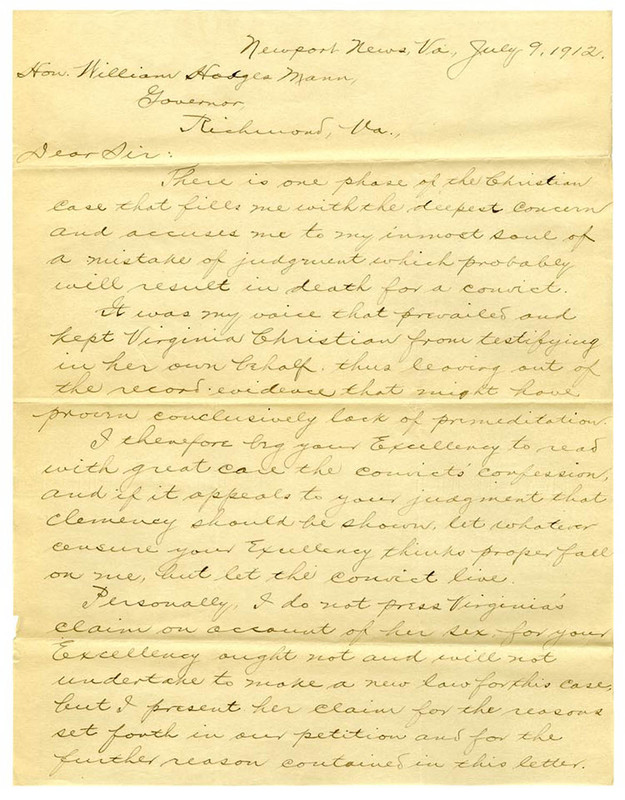 Newport News, Va., July 9, 1912.
Hon. William Hodges Mann,
Governor,
Richmond, Va.,
Dear Sir:
There is one phase of the Christian
case that fills me with the deepest concern
and accuses me to my inmost soul of
a mistake of judgment which probably
will result in death for a convict.
It was my voice that prevailed and
kept Virginia Christian from testifying
in her own behalf, thus leaving out of
the record evidence that might have
proven conclusively lack of premeditation.
I therefore beg your Excellency to read
with great care the convict's confession,
and if it appeals to your judgment that
clemency should be shown, let whatever
censure your Excellency thinks proper fall
on me, but let the convict live.
Personally, I do not press Virginia's
claim on account of her sex, for your
Excellency ought not and will not
undertake to make a new law for this case,
but I present her claim for the reasons
set forth in our petition and for the
further reason contained in this letter.